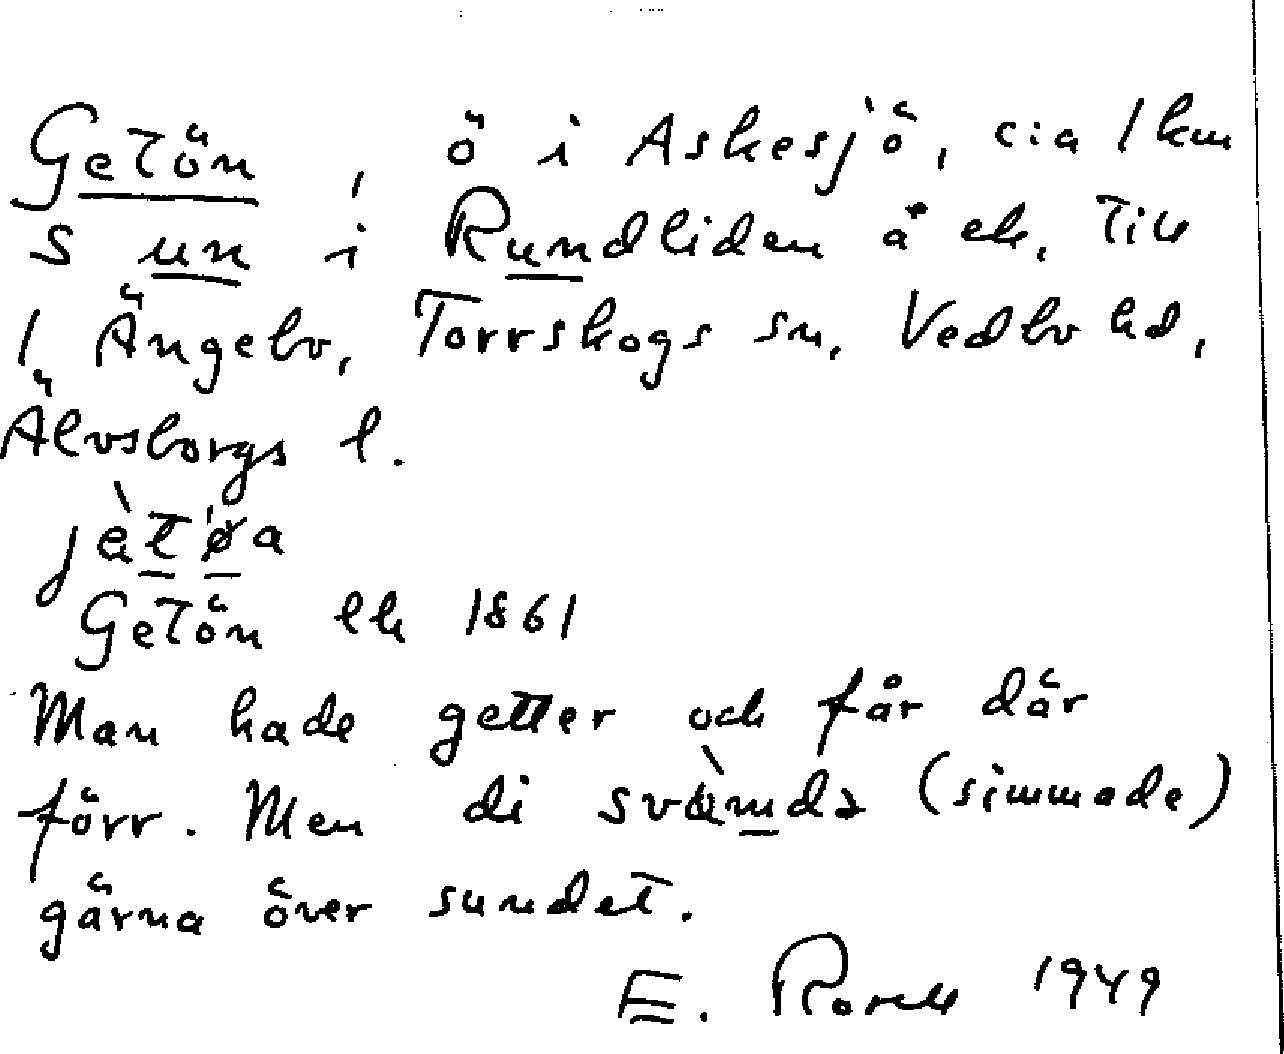 Getön, ö i Askesjö, c:a 1 km
S un i Rundliden å ek. Till
1 Ängebo, Torrskogs sn, Vedbo hd,
Älvsborgs l.
jètøa
Getön ek 1861
Man hade getter och får där
förr. Men di svàmdə (simmade)
gärna över sundet.
E. 1949